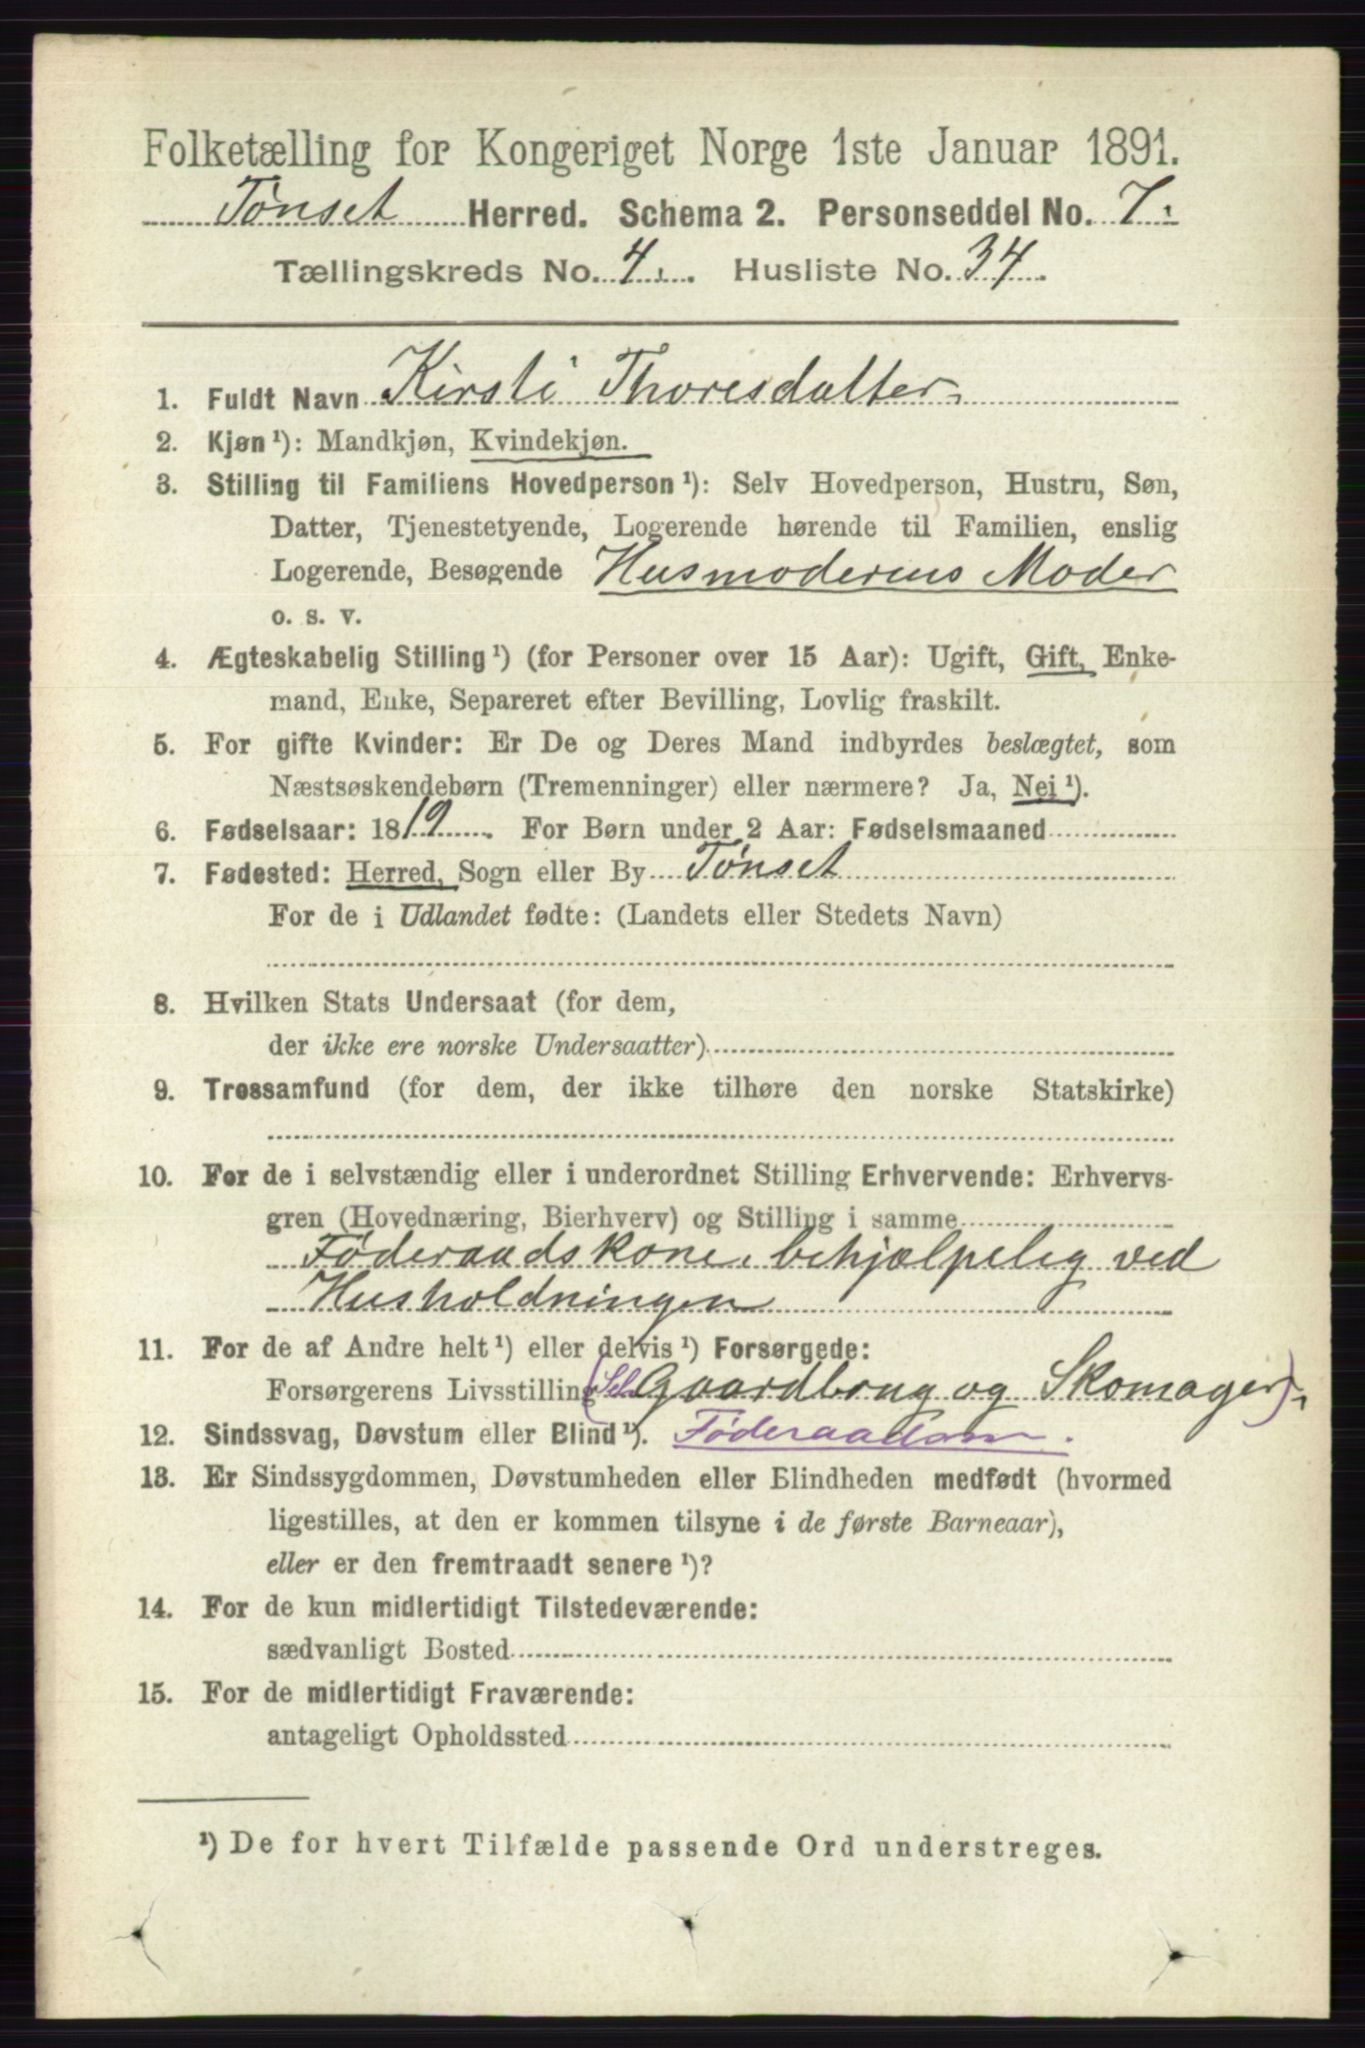 Folketælling for Kongeriget Norge 1ste Januar 1891.
Tønset Herred. Schema 2. Personseddel No. 7.
Tællingskreds No. 4. Husliste No. 34.
1. Fuldt Navn Kirsti Thoresdatter
2. Kjøn ¹): Mandkjøn, Kvindekjøn.
3. Stilling til Familiens Hovedperson ¹): Selv Hovedperson, Hustru, Søn,
Datter, Tjenestetyende, Logerende hørende til Familien, enslig
Logerende, Besøgende Husmoderens Moder
o. s. v.
4. Ægteskabelig Stilling ¹) (for Personer over 15 Aar): Ugift, Gift, Enke-
mand, Enke, Separeret efter Bevilling, Lovlig fraskilt.
5. For gifte Kvinder: Er De og Deres Mand indbyrdes beslægtet, som
Næstsøskendebørn (Tremenninger) eller nærmere? Ja, Nei ¹).
6. Fødselsaar: 1819. For Børn under 2 Aar: Fødselsmaaned
7. Fødested: Herred, Sogn eller By Tønset
For de i Udlandet fødte: (Landets eller Stedets Navn)
8. Hvilken Stats Undersaat (for dem,
der ikke ere norske Undersaatter)
9. Trossamfund (for dem, der ikke tilhøre den norske Statskirke)
10. For de i selvstændig eller i underordnet Stilling Erhvervende: Erhvervs-
gren (Hovednæring, Bierhverv) og Stilling i samme
Føderaadskone, behjælpelig ved
Husholdningen
11. For de af Andre helt ¹) eller delvis ¹) Forsørgede:
Forsørgerens Livsstilling (Sel. Gaardbrug og Skomager)
12. Sindssvag, Døvstum eller Blind ¹).
13. Er Sindssygdommen, Døvstumheden eller Blindheden medfødt (hvormed
ligestilles, at den er kommen tilsyne i de første Barneaar),
eller er den fremtraadt senere ¹)?
14. For de kun midlertidigt Tilstedeværende:
sædvanligt Bosted
15. For de midlertidigt Fraværende:
antageligt Opholdssted
¹) De for hvert Tilfælde passende Ord understreges.